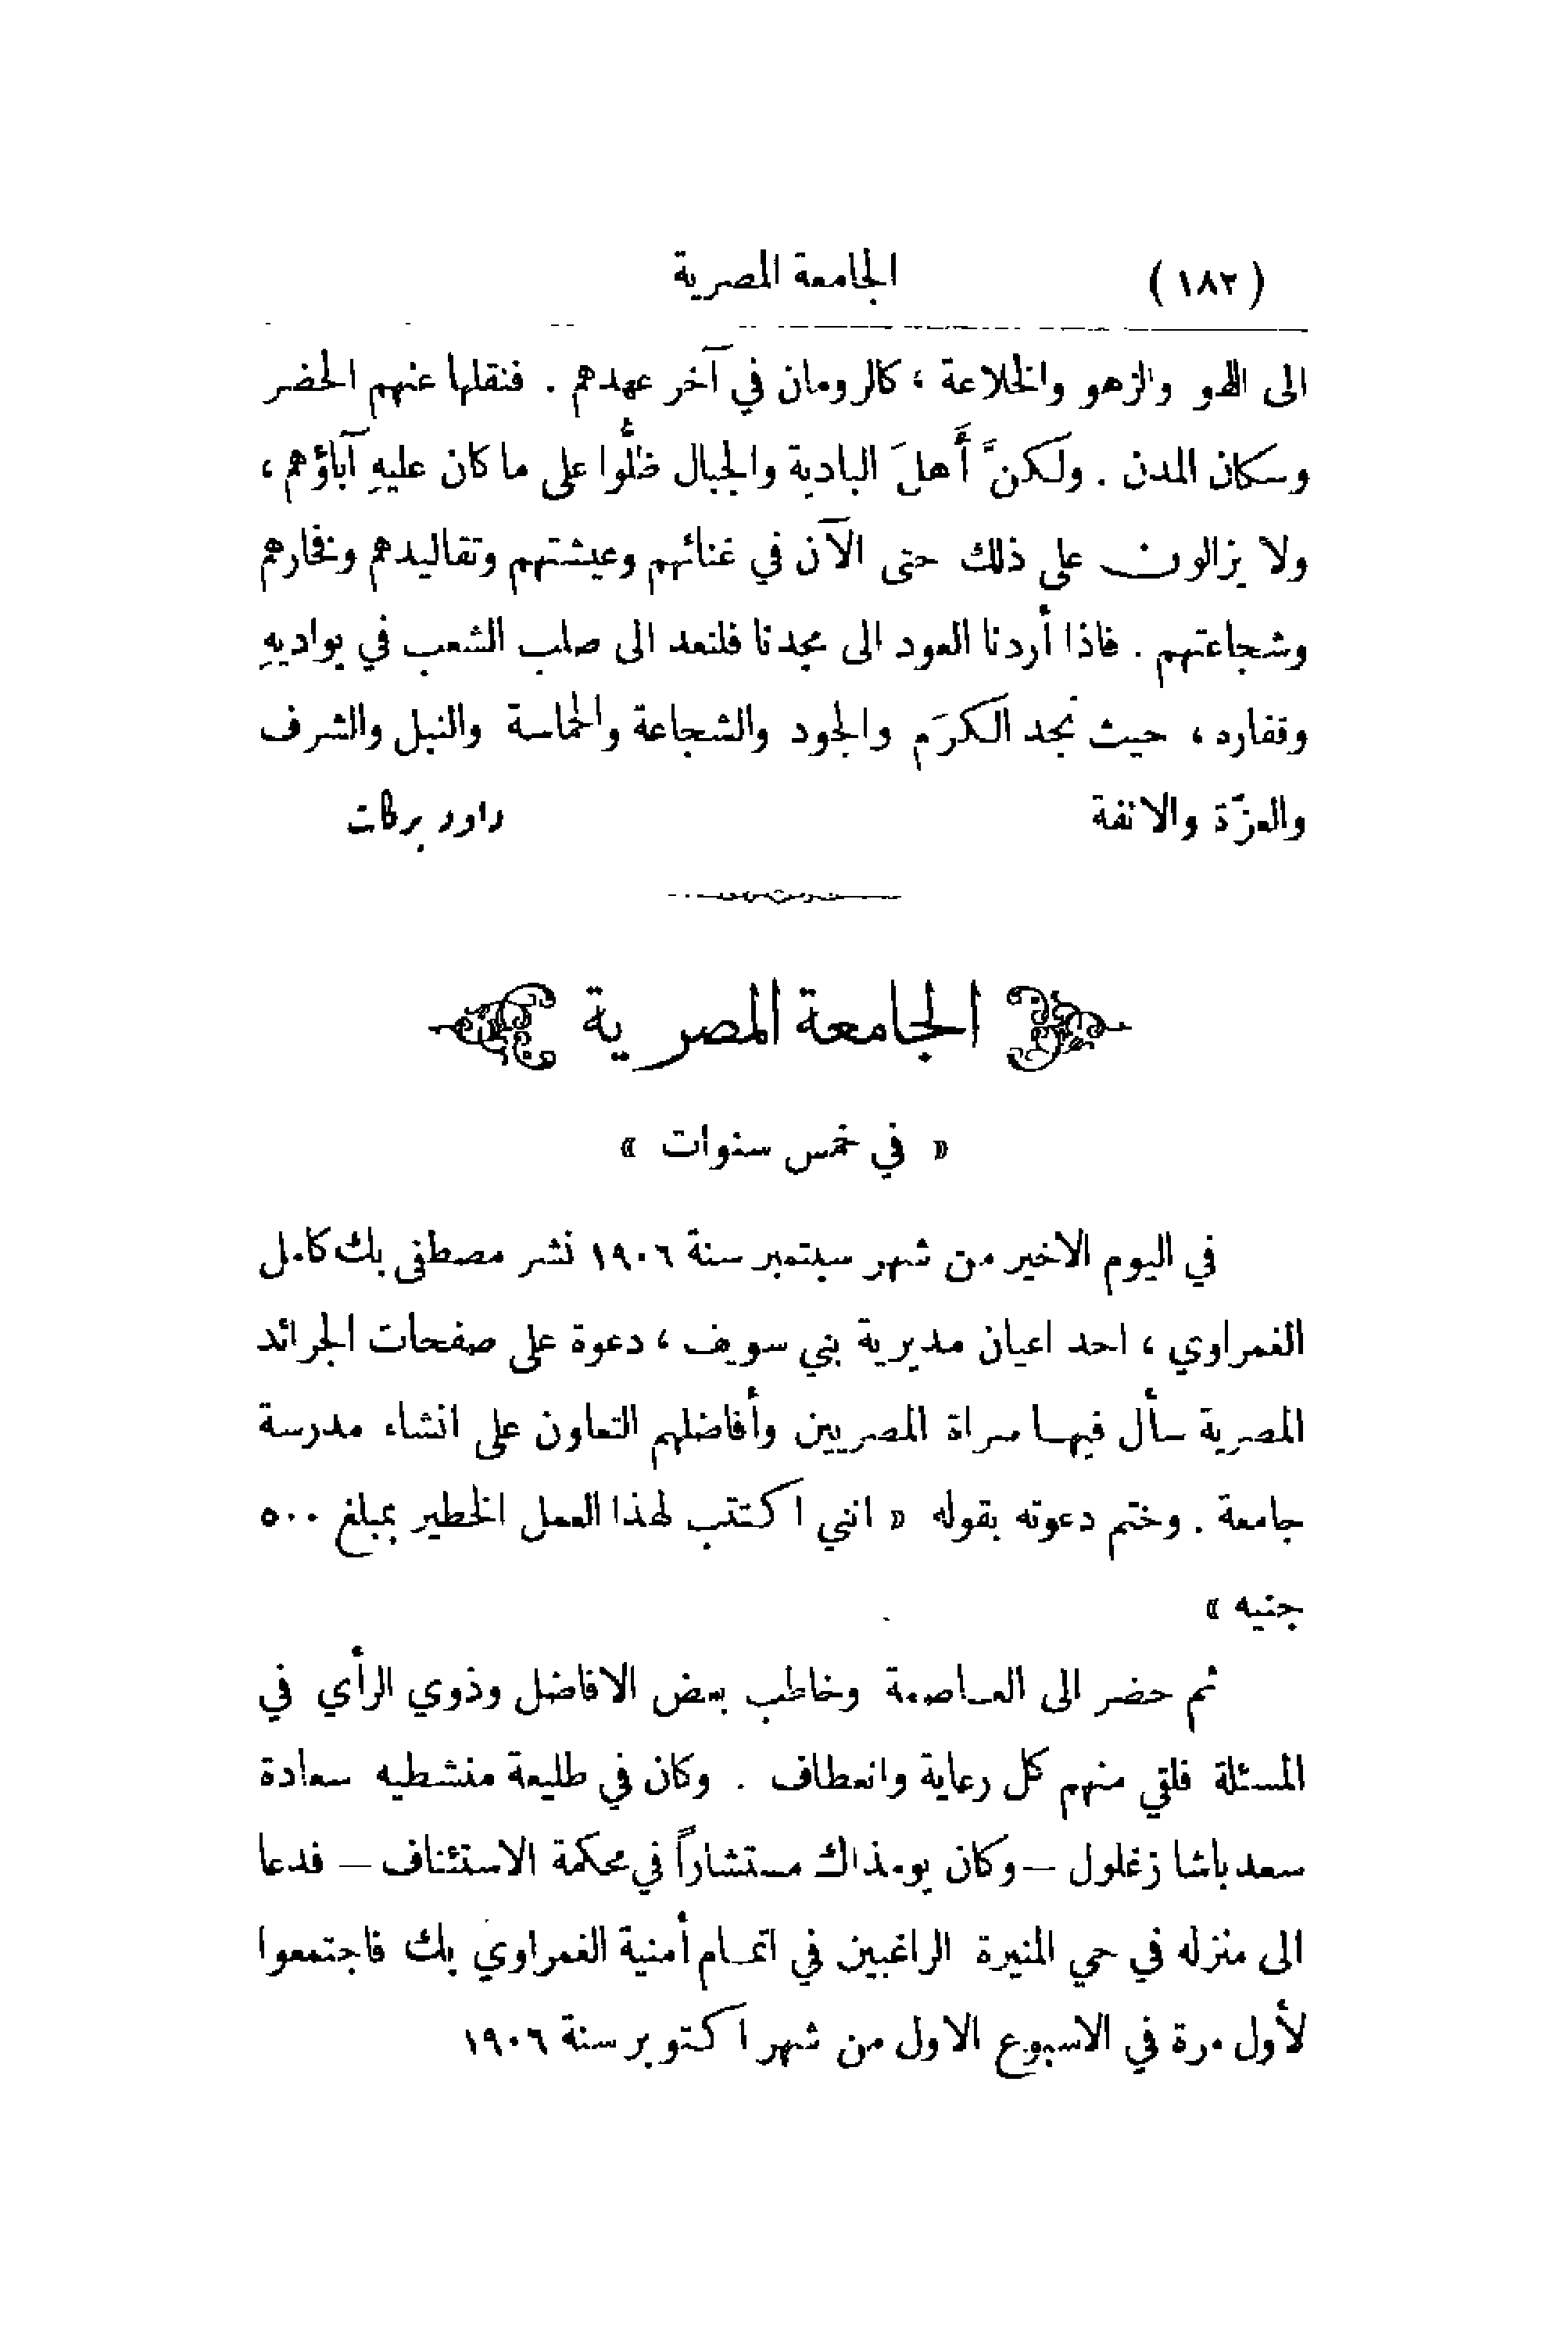 (١٨٢) الجامعة المصرية
الى اللهو والزهو والخلاعة ، كالرومان في آخر عهدهم . فنقلها عنهم الحضر
وسكان المدن . ولكنَّ أَهلَ البادية والجبال ظلُّوا على ما كان عليهِ آباؤهم ،
ولا يزالون على ذلك حتى الآن في غنائهم وعيشتهم وتقاليدهم وفخارهم
وشجاعتهم . فاذا أردنا العود الى مجدنا فلنعد الى صلب الشعب في بواديهِ
وقفاره ، حيث نجد الكرَم والجود والشجاعة والحماسة والنبل والشرف
والعزّة والانفة داود بركات
الجامعة المصرية
« في خمس سنوات »
في اليوم الاخير من شهر سبتمبر سنة ١٩٠٦ نشر مصطفى بك كامل
الغمراوي ، احد اعيان مديرية بني سويف ، دعوة على صفحات الجرائد
المصرية سأل فيها سراة المصريين وأفاضلهم التعاون على انشاء مدرسة
جامعة . وختم دعوته بقوله « انني اكتتب لهذا العمل الخطير بمبلغ ٥٠٠
جنيه »
ثم حضر الى العاصمة وخاطب بعض الافاضل وذوي الرأي في
المسئلة فلقي منهم كل رعاية وانعطاف . وكان في طليعة منشطيه سعادة
سعد باشا زغلول – وكان يومذاك مستشاراً في محكمة الاستئناف – فدعا
الى منزله في حي المنيرة الراغبين في اتمام أمنية الغمراوي بك فاجتمعوا
لأول مرة في الاسبوع الاول من شهر اكتوبر سنة ١٩٠٦